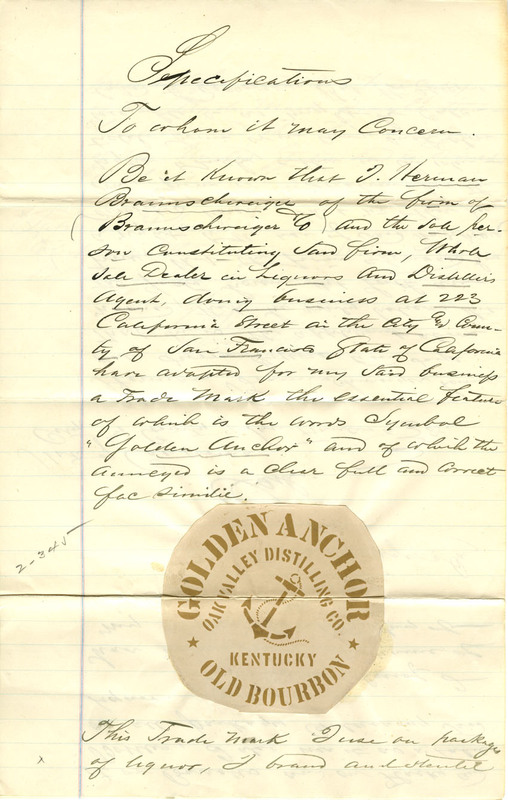 Specifications
To whom it may Concern.
Be it Known that I, Herman
Braunschweiger of the firm of
(Braunschweiger & Co) and the sole per-
son constituting said firm, Whole
Sale Dealer in Liquors and Distillers
Agent, doing business at 223
California Street in the City and Coun-
ty of San Francisco State of California
have adopted for my said business
a Trade Mark the essential feature
of which is the words Symbol
"Golden Anchor" and of which the
annexed is a clear full and correct
fac similie.
2-345
GOLDEN ANCHOR
OAK VALLEY DISTILLING CO.
KENTUCKY
OLD BOURBON
This Trade Mark I use on packages
of liquor, I brand and stencil